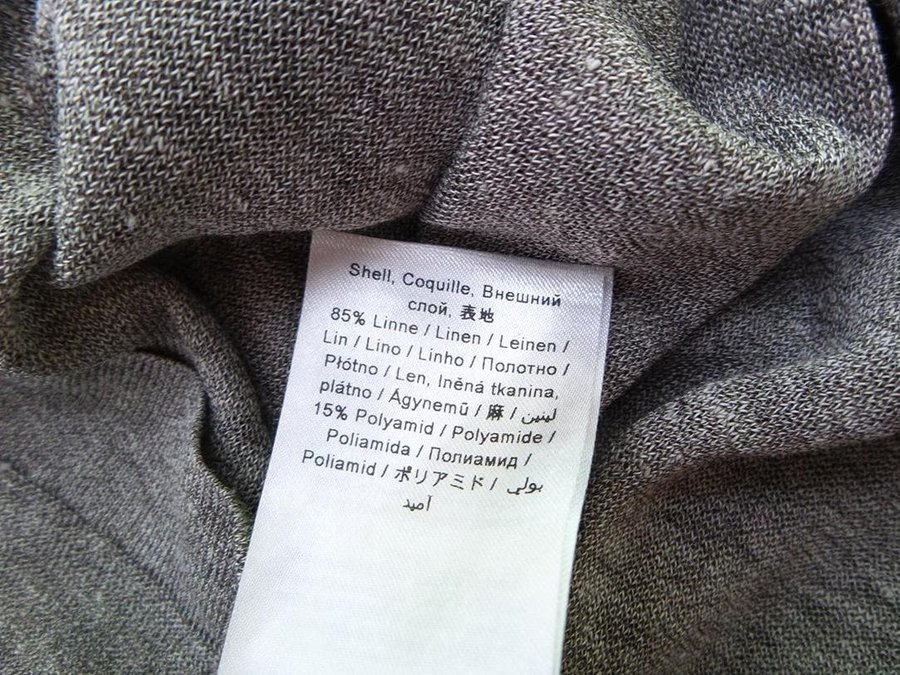 Shell, Coquille, Внешний
слой, 表地
85% Linne / Linen / Leinen /
Lin / Lino / Linho / Полотно /
Płótno / Len, lněná tkanina,
plátno / Ágynemű / 麻 / لينين
15% Polyamid / Polyamide /
Poliamida / Полиамид /
Poliamid / ポリアミド / بولي
آميد